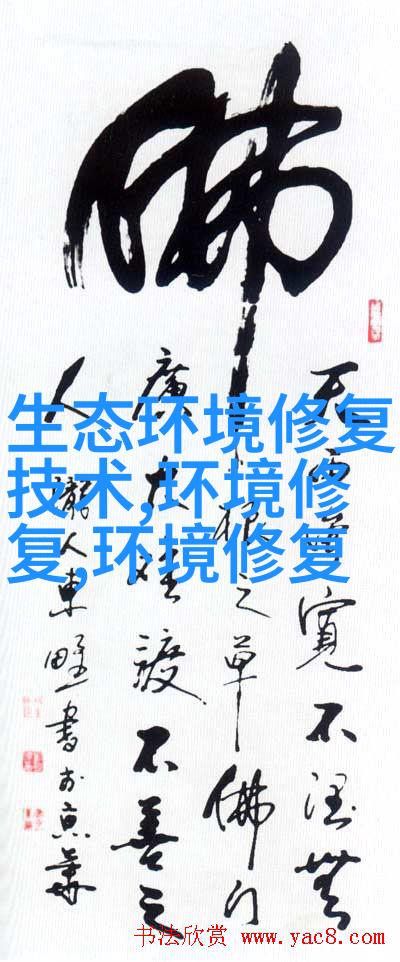 佛
天雨虽寬不润無
根之草佛门
廣大难渡不善之
人 人東野書于京華
生态环境修复
技术,环境修
复,环境修复
书法欣赏 www.yac8.com